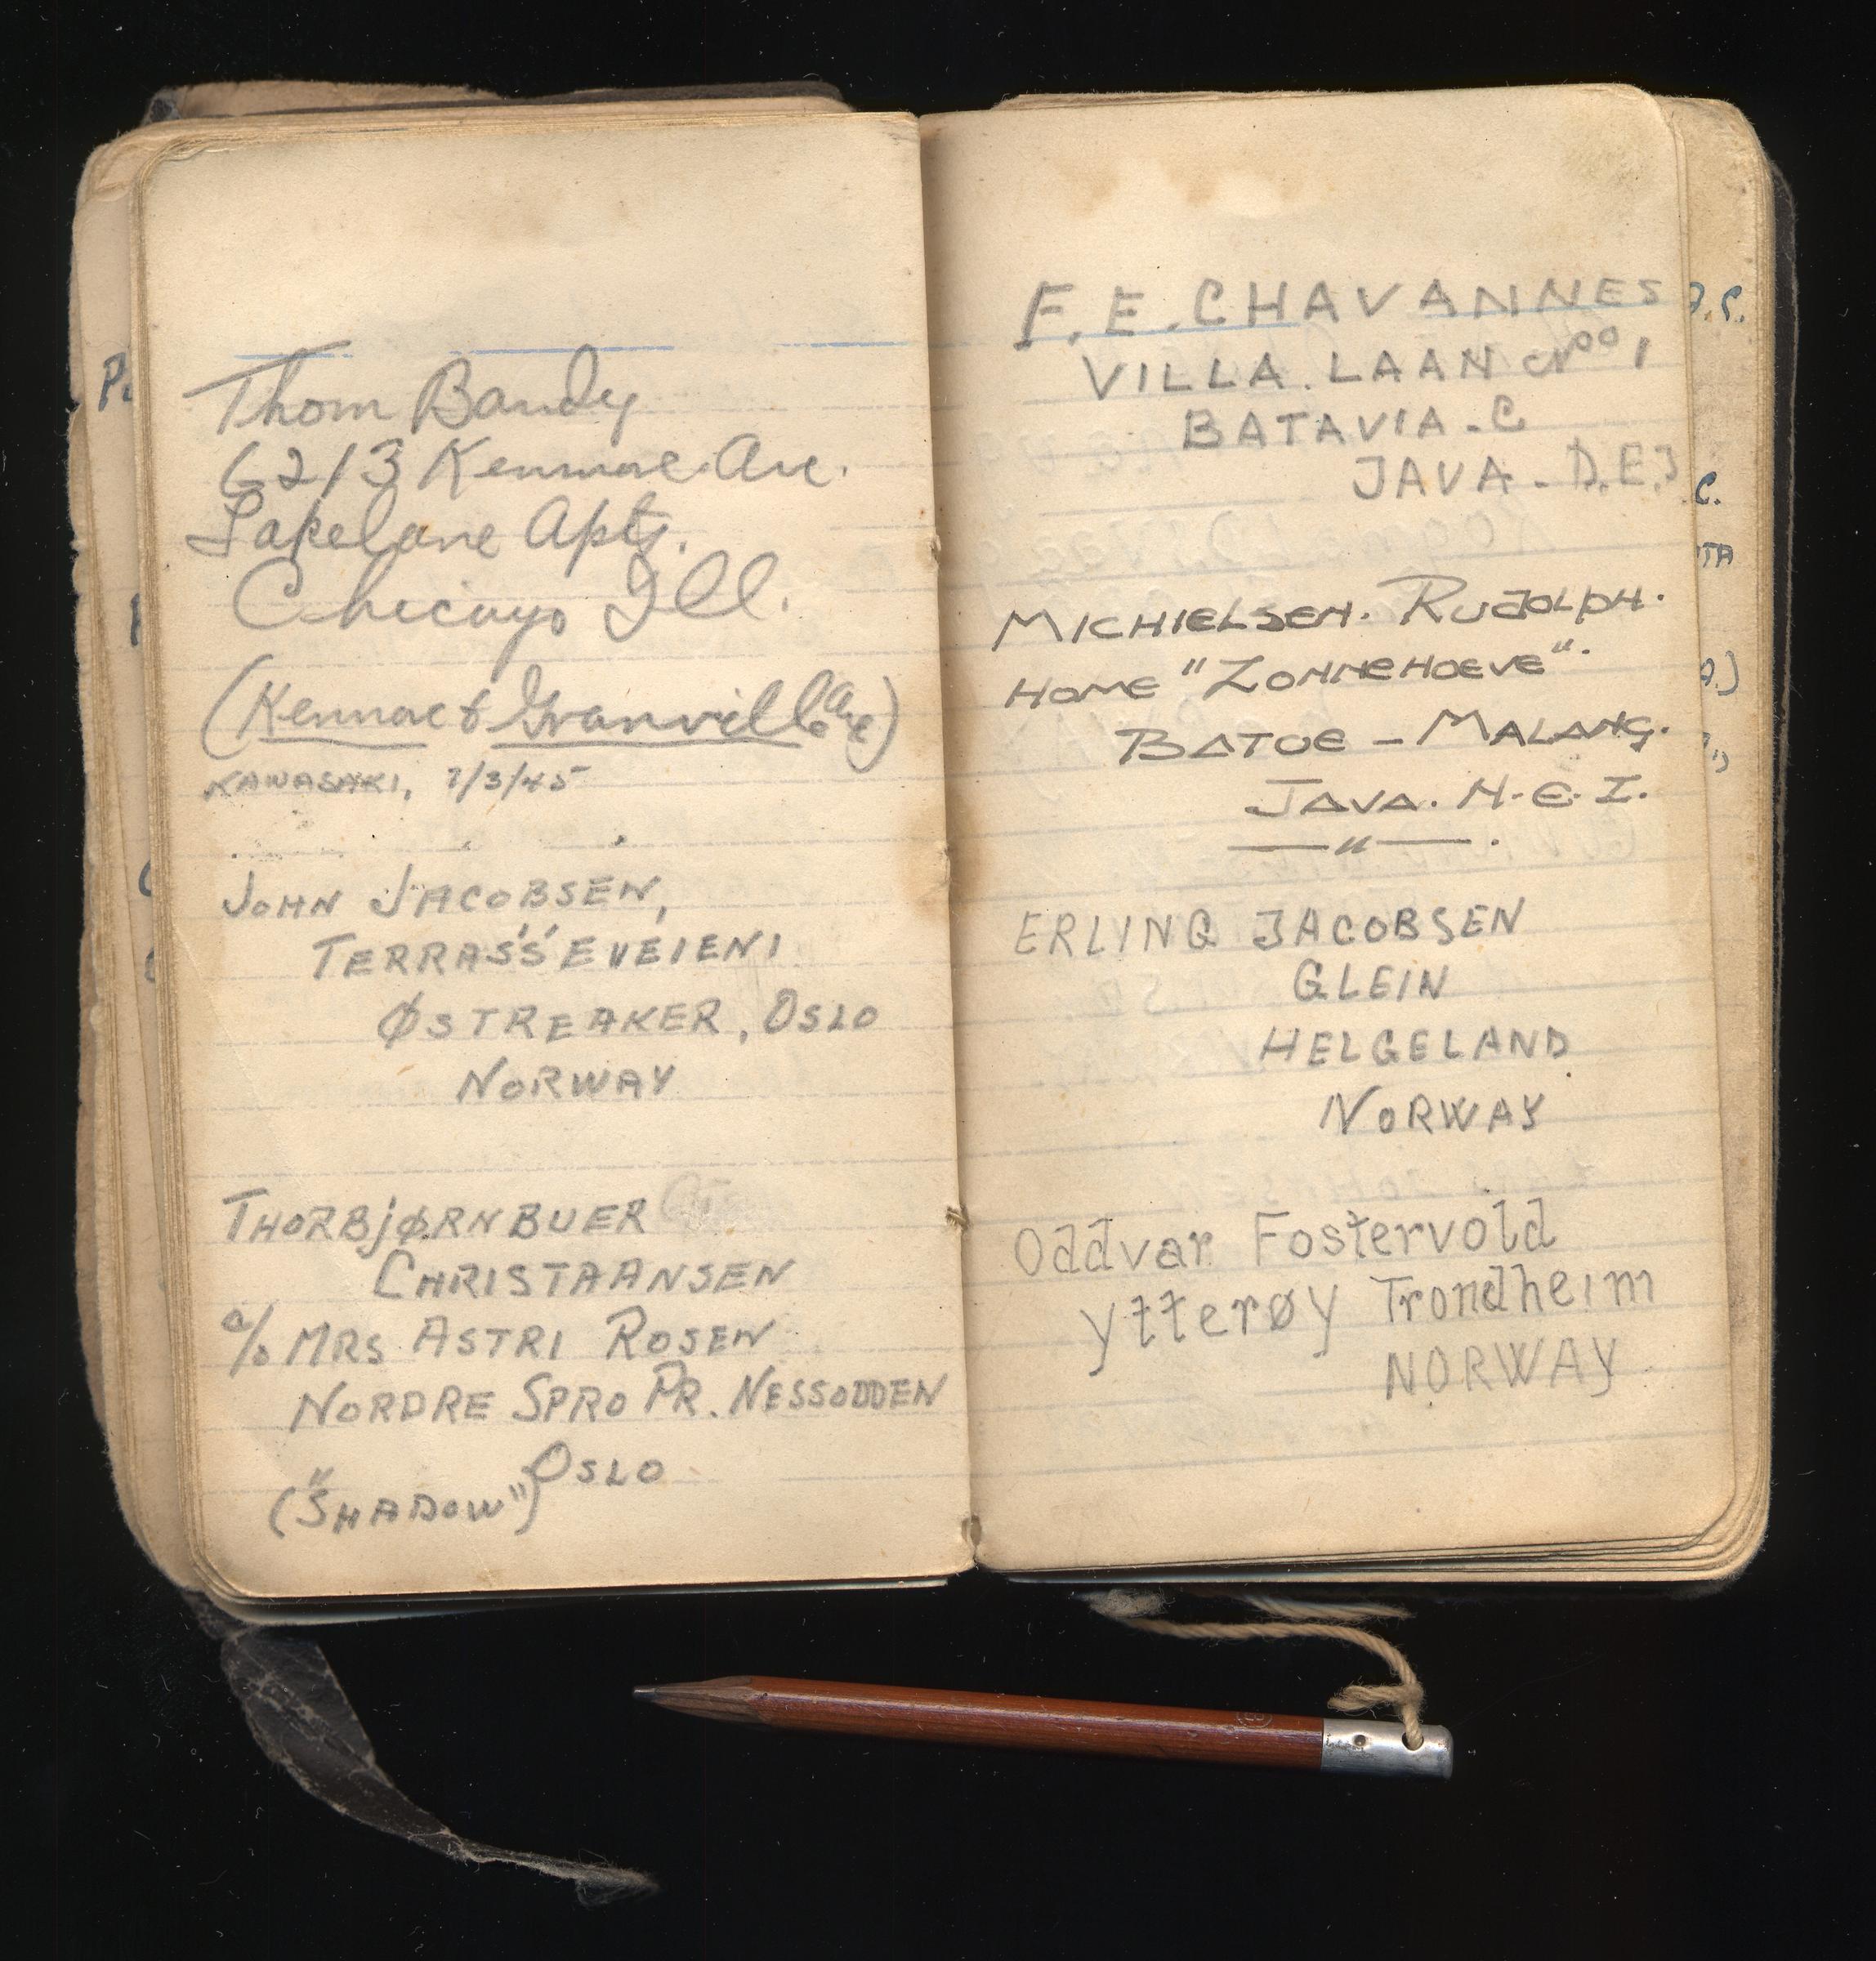 Thom Bandy
6213 Kenmore Ave.
Lakelane Apts.
Chicago Ill.
(Kenmore & Granville Ave)
KAWASAKI, 7/3/45
JOHN JACOBSEN,
TERRASSEVEIEN 1
ØSTREAKER, OSLO
NORWAY
THORBJØRN BUER
CHRISTAANSEN
c/o MRS ASTRI ROSEN
NORDRE SPRO PR. NESSODDEN
OSLO
("SHADOW")
F. E. CHAVANNES
VILLA. LAAN No 1
BATAVIA. C
JAVA. D.E.I
MICHIELSEN. RUDOLPH.
HOME "ZONNEHOEVE".
BATOE - MALANG.
JAVA. N.E.I.
ERLING JACOBSEN
GLEIN
HELGELAND
NORWAY
Oddvar Fostervold
Ytterøy Trondheim
NORWAY